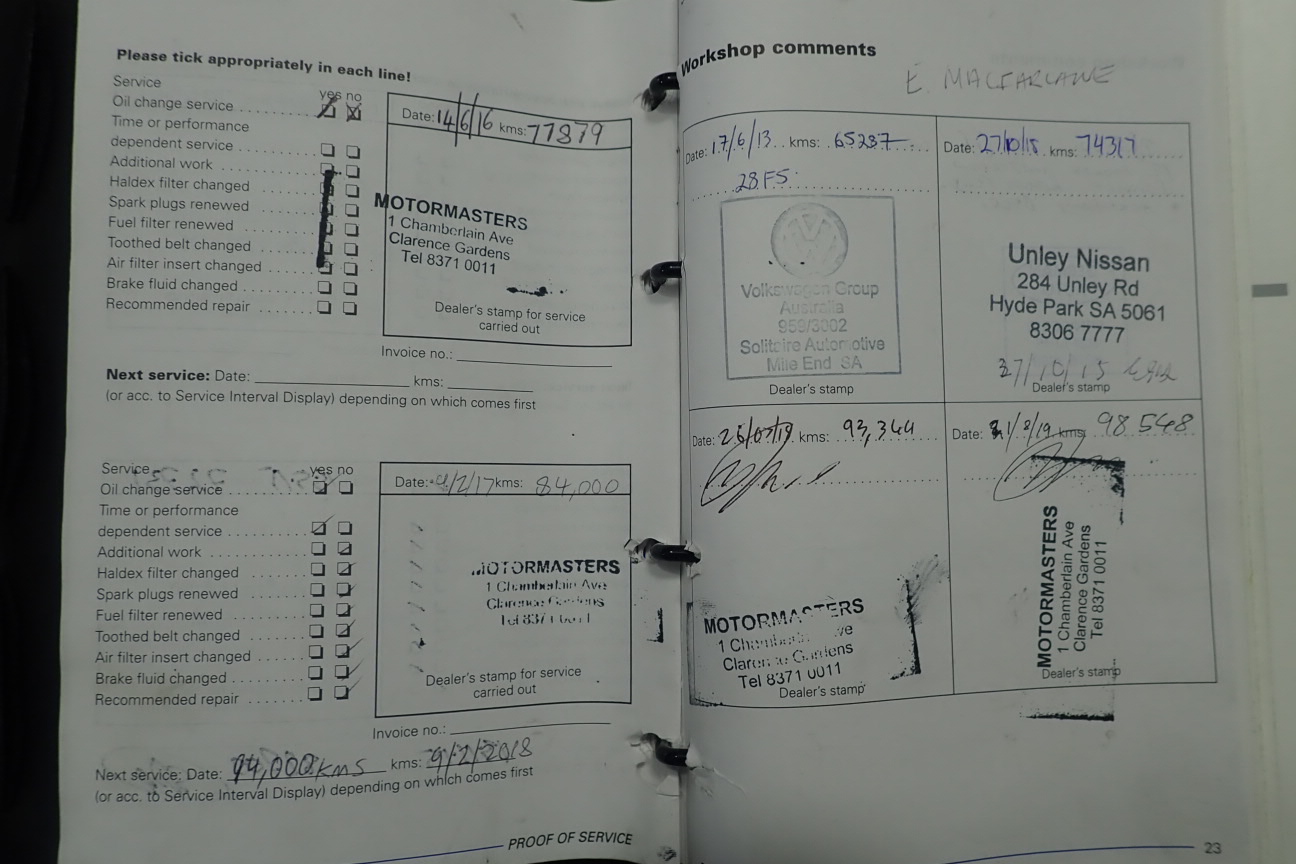 Please tick appropriately in each line!
Service
yes no
Oil change service
Time or performance
dependent service
Additional work
Haldex filter changed
Spark plugs renewed
Fuel filter renewed
Toothed belt changed
Air filter insert changed
Brake fluid changed
Recommended repair
Date: 14/6/16 kms: 77879
MOTORMASTERS
1 Chamberlain Ave
Clarence Gardens
Tel 8371 0011
Dealer's stamp for service
carried out
Invoice no.:
Next service: Date: kms:
(or acc. to Service Interval Display) depending on which comes first
Service
yes no
Oil change service
Time or performance
dependent service
Additional work
Haldex filter changed
Spark plugs renewed
Fuel filter renewed
Toothed belt changed
Air filter insert changed
Brake fluid changed
Recommended repair
Date: 9/2/17 kms: 84,000
MOTORMASTERS
1 Chamberlain Ave
Clarence Gardens
Tel 8371
Dealer's stamp for service
carried out
Invoice no.:
Next service: Date: 94,000 kms kms: 9/2/2018
(or acc. to Service Interval Display) depending on which comes first
PROOF OF SERVICE
Workshop comments
E. MACFARLANE
Date: 17/6/13 kms: 65287
28FS
Volkswagen Group
Australia
959/3002
Solitaire Automotive
Mile End SA
Dealer's stamp
Date: 27/10/15 kms: 74317
Unley Nissan
284 Unley Rd
Hyde Park SA 5061
8306 7777
27/10/15
Dealer's stamp
Date: kms: 93,344
MOTORMASTERS
1 Chamberlain Ave
Clarence Gardens
Tel 8371 0011
Dealer's stamp
Date: 21/8/19 kms: 98548
MOTORMASTERS
1 Chamberlain Ave
Clarence Gardens
Tel 8371 0011
Dealer's stamp
23